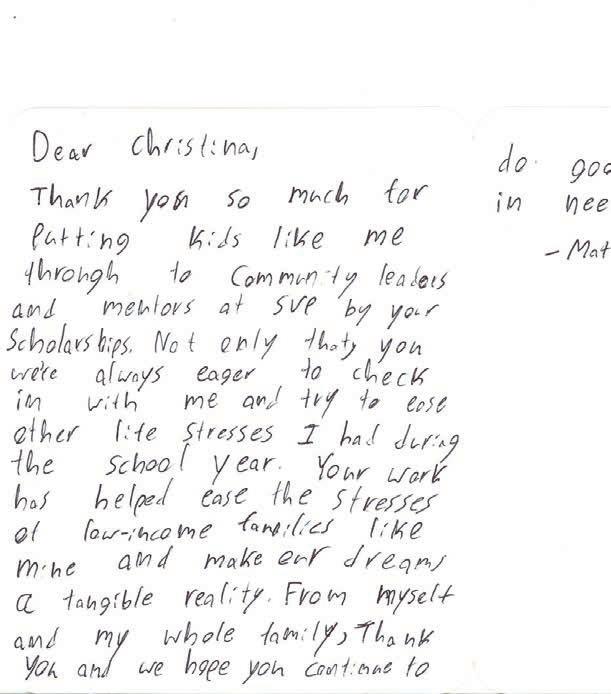 Dear Christina,
Thank you so much for
Putting kids like me
through to Community leaders
and mentors at SVP by your
Scholarships. Not only that, you
were always eager to check
in with me and try to ease
other life stresses I had during
the school year. Your work
has helped ease the stresses
of low-income families like
mine and make our dreams
a tangible reality. From myself
and my whole family, Thank
you and we hope you continue to
do goo
in nee
- Mat